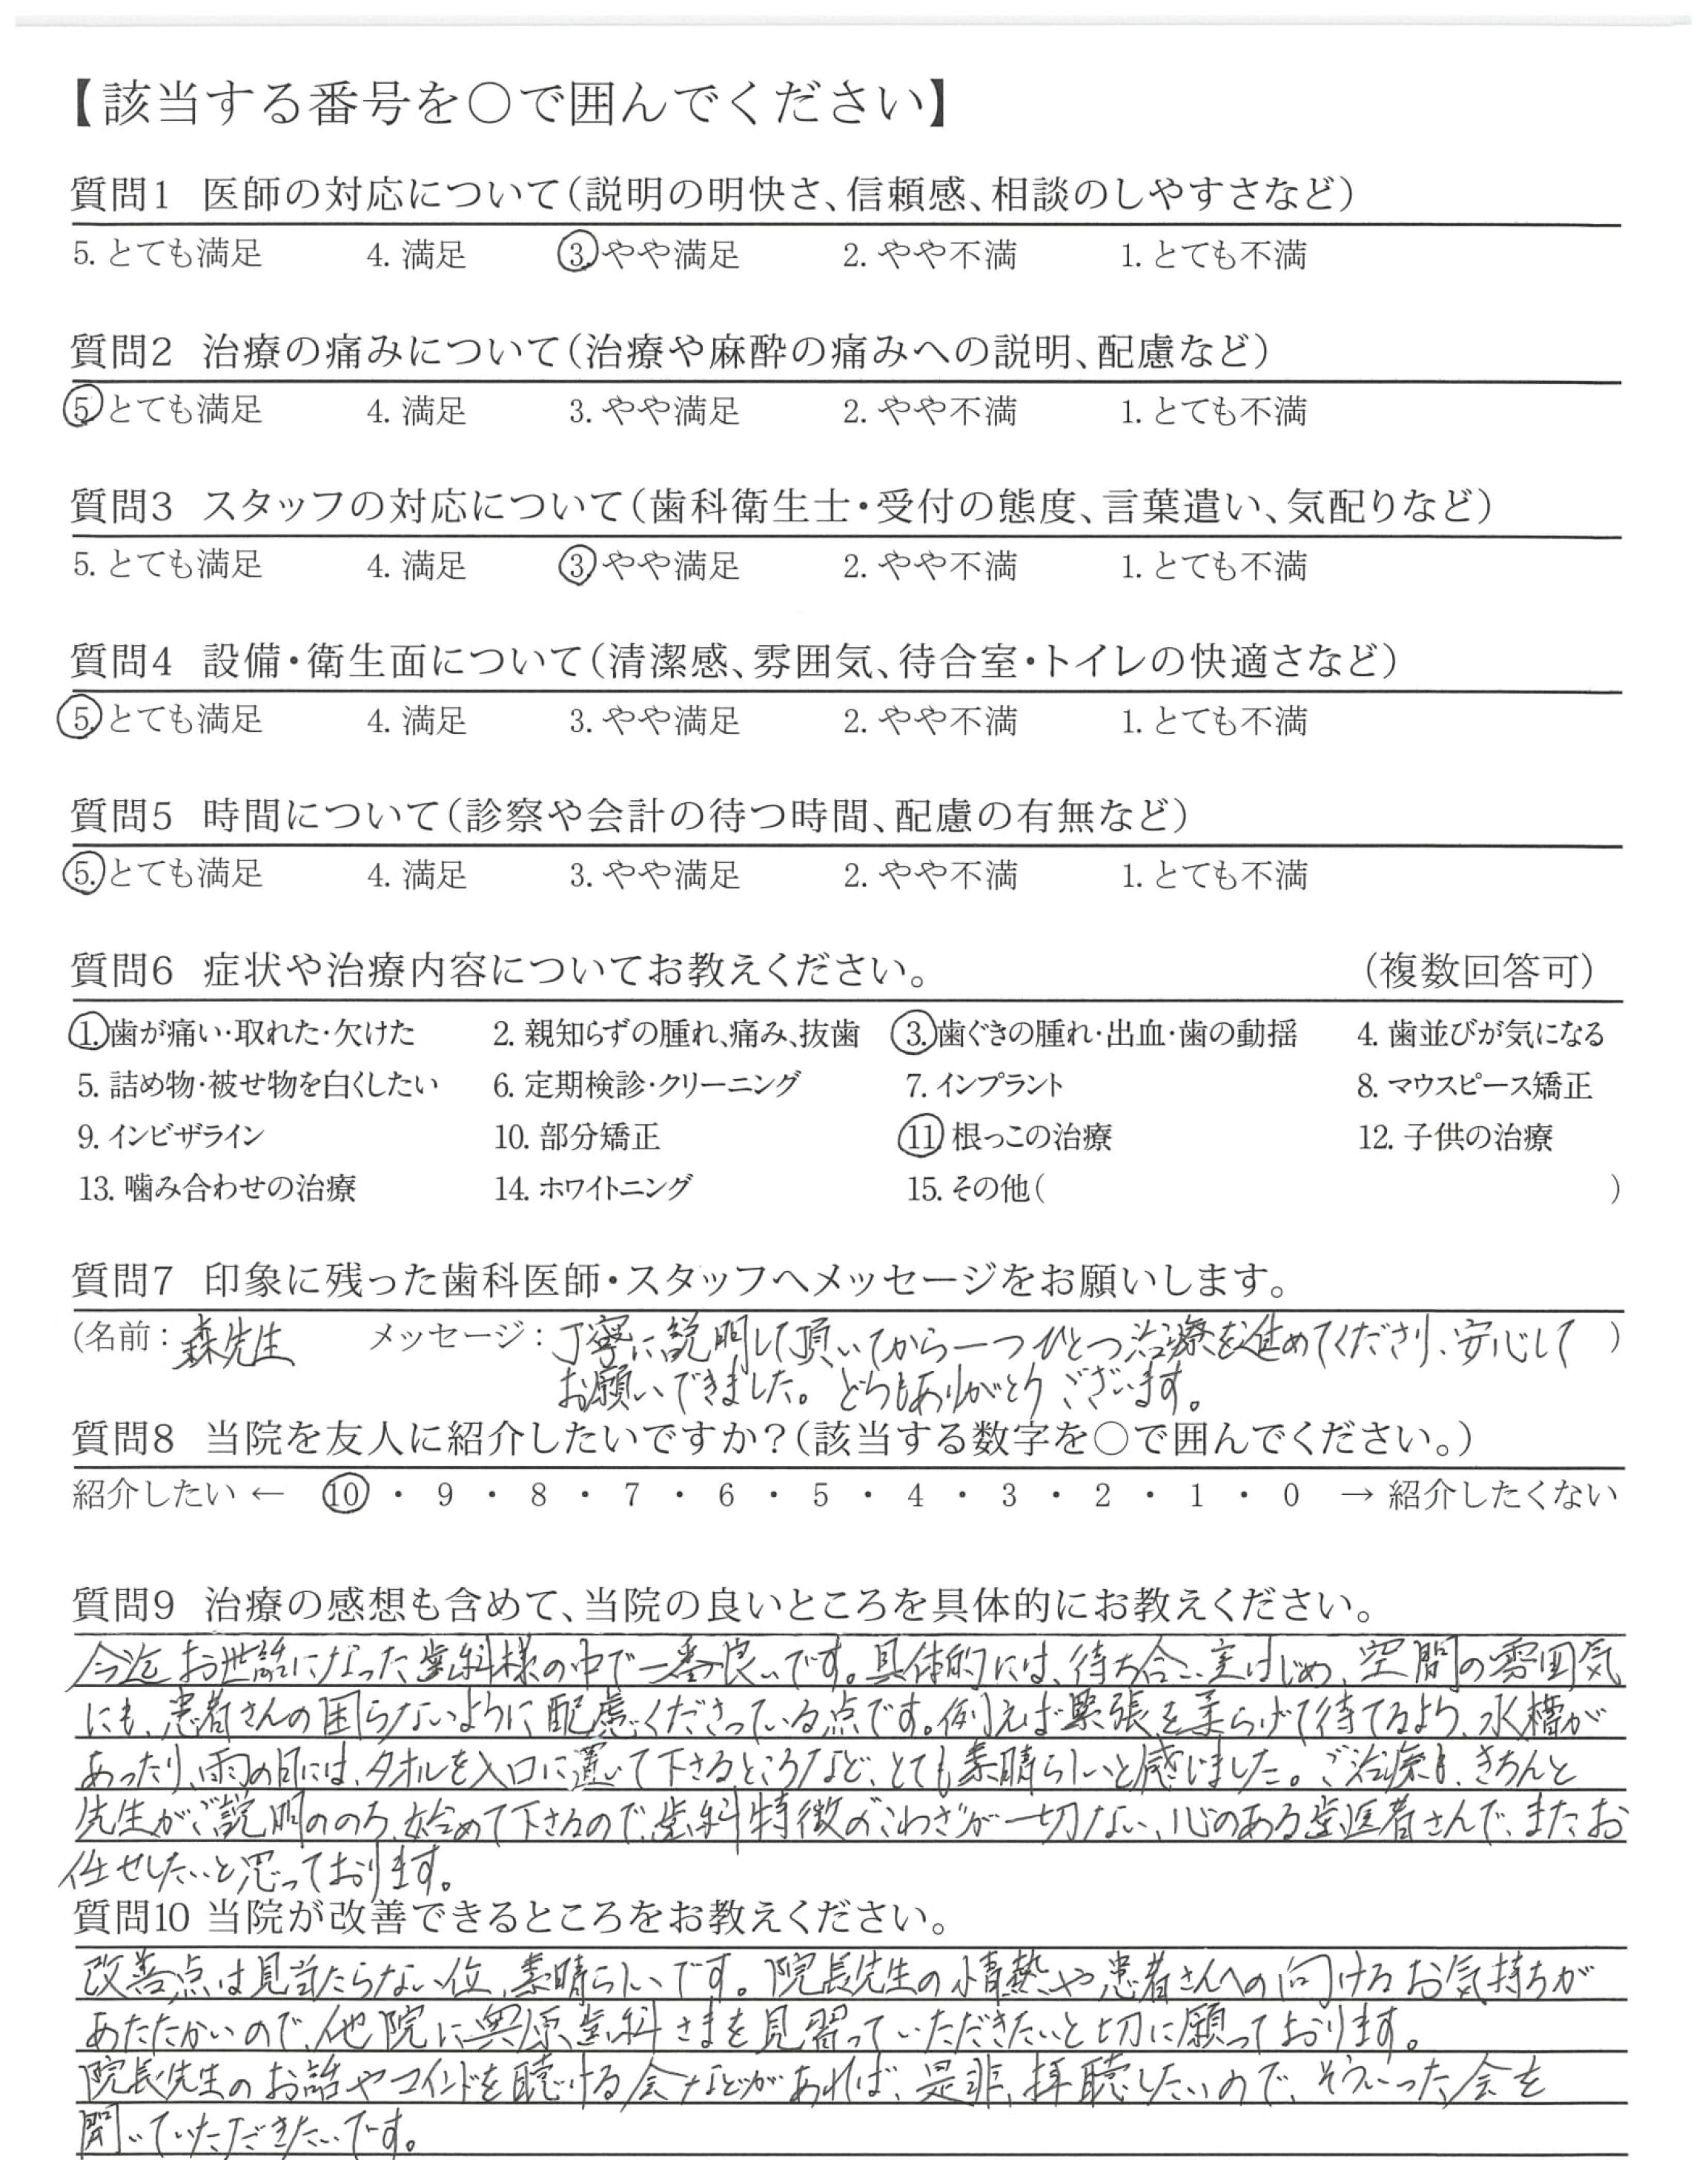 【該当する番号を○で囲んでください】
質問1 医師の対応について(説明の明快さ、信頼感、相談のしやすさなど)
5. とても満足 4. 満足 3. やや満足 2. やや不満 1. とても不満
質問2 治療の痛みについて(治療や麻酔の痛みへの説明、配慮など)
5. とても満足 4. 満足 3. やや満足 2. やや不満 1. とても不満
質問3 スタッフの対応について(歯科衛生士・受付の態度、言葉遣い、気配りなど)
5. とても満足 4. 満足 3. やや満足 2. やや不満 1. とても不満
質問4 設備・衛生面について(清潔感、雰囲気、待合室・トイレの快適さなど)
5. とても満足 4. 満足 3. やや満足 2. やや不満 1. とても不満
質問5 時間について(診察や会計の待つ時間、配慮の有無など)
5. とても満足 4. 満足 3. やや満足 2. やや不満 1. とても不満
質問6 症状や治療内容についてお教えください。 (複数回答可)
1. 歯が痛い・取れた・欠けた 2. 親知らずの腫れ、痛み、抜歯 3. 歯ぐきの腫れ・出血・歯の動揺 4. 歯並びが気になる
5. 詰め物・被せ物を白くしたい 6. 定期検診・クリーニング 7. インプラント 8. マウスピース矯正
9. インビザライン 10. 部分矯正 11. 根っこの治療 12. 子供の治療
13. 噛み合わせの治療 14. ホワイトニング 15. その他( )
質問7 印象に残った歯科医師・スタッフへメッセージをお願いします。
(名前: 森先生 メッセージ: 丁寧に説明して頂いてから一つひとつ治療を進めてくださり、安心して )
お願いできました。どうもありがとうございます。
質問8 当院を友人に紹介したいですか?(該当する数字を○で囲んでください。)
紹介したい ← 10 ・ 9 ・ 8 ・ 7 ・ 6 ・ 5 ・ 4 ・ 3 ・ 2 ・ 1 ・ 0 → 紹介したくない
質問9 治療の感想も含めて、当院の良いところを具体的にお教えください。
今迄お世話になった歯科様の中で一番良いです。具体的には、待ち合い室はじめ、空間の雰囲気
にも、患者さんの困らないように配慮くださっている点です。例えば緊張を柔らげて待てるよう、水槽が
あったり、雨の日には、タオルを入口に置いて下さるところなど、とても素晴らしいと感じました。ご治療も、きちんと
先生がご説明ののち、始めて下さるので、歯科特徴のこわさが一切ない、心のある歯医者さんで、またお
任せしたいと思っております。
質問10 当院が改善できるところをお教えください。
改善点は見当たらない位、素晴らしいです。院長先生の情熱や患者さんへの向けるお気持ちが
あたたかいので、他院に奥原歯科さまを見習っていただきたいと切に願っております。
院長先生のお話やマインドを聴ける会などがあれば、是非、拝聴したいので、そういった会を
開いていただきたいです。